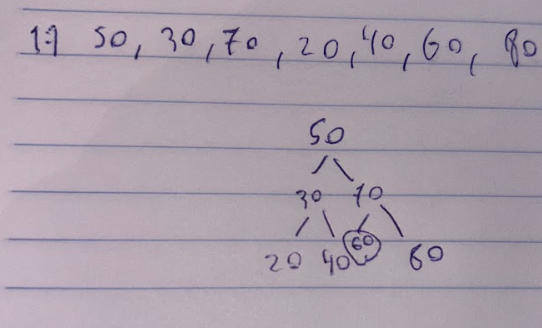 1.1 50, 30, 70, 20, 40, 60, 80
50
30 70
20 40 60 60